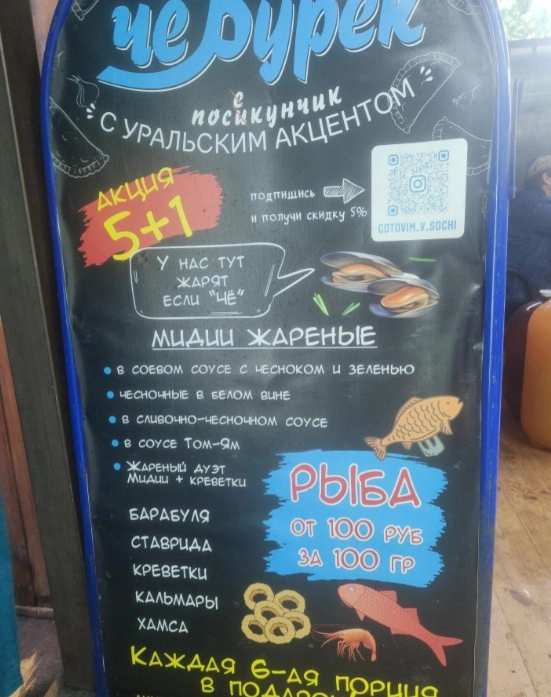 чебурек
посикунчик
е
С УРАЛЬСКИМ АКЦЕНТОМ
АКЦИЯ
5+1
подпишись
и получи скидку 5%
GOTOVIM_V_SOCHI
У НАС ТУТ
ЖАРЯТ
ЕСЛИ "ЧЁ"
МИДИИ ЖАРЕНЫЕ
• В СОЕВОМ СОУСЕ С ЧЕСНОКОМ И ЗЕЛЕНЬЮ
• ЧЕСНОЧНЫЕ В БЕЛОМ ВИНЕ
• В СЛИВОЧНО-ЧЕСНОЧНОМ СОУСЕ
• В СОУСЕ ТОМ-ЯМ
• ЖАРЕНЫЙ ДУЭТ
МИДИИ + КРЕВЕТКИ
РЫБА
ОТ 100 РУБ
ЗА 100 ГР
БАРАБУЛЯ
СТАВРИДА
КРЕВЕТКИ
КАЛЬМАРЫ
ХАМСА
КАЖДАЯ 6-АЯ ПОРЦИЯ
В